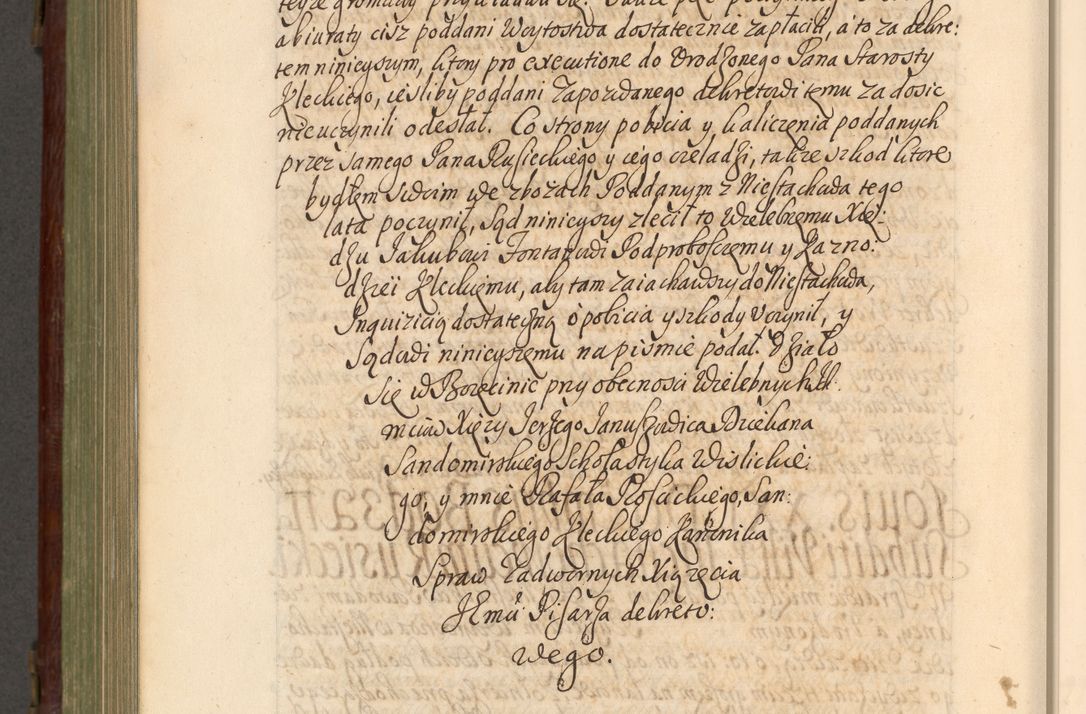 teyże gromady
abiuraty cisz poddani Woytostwa dostatecznie zapłacili, a to za dekre:
tem ninieyszym, ktory pro executione do Urodzonego Pana Starosty
Kleckiego, ieśliby poddani Zapozwanego dekretowi temu za dosic
nie uczynili odesłał. Co strony pobicia y kaliczenia poddanych
przez samego Pana Rusieckiego y iego czeladzi, także szkod ktore
bydłem swoim we zbożach Poddanym z Niestachowa tego
lata poczynił, Sąd ninieyszy zlecił to Wielebnemu Xię:
dzu Jakubowi Fontanowi Podproboszczemu y Kazno:
dzieii Kleckiemu, aby tam zaiachawszy do Niestachowa,
Inquizicią dostateczną o pobicia y szkody Uczynił, y
Sądowi ninieyszemu na pismie podał. Działo
się w Borzęcinie przy obecności Wielebnych II.
mciow Xięży Jerzego Januszowica Dziekana
Sandomirskiego Scholastyka Wislickie:
go, y mnie Rafała Rościckiego, San:
domirskiego Kleckiego Kanonika
Spraw Zadwornych Xiążęcia
JEmci Pisarza dekreto:
wego.